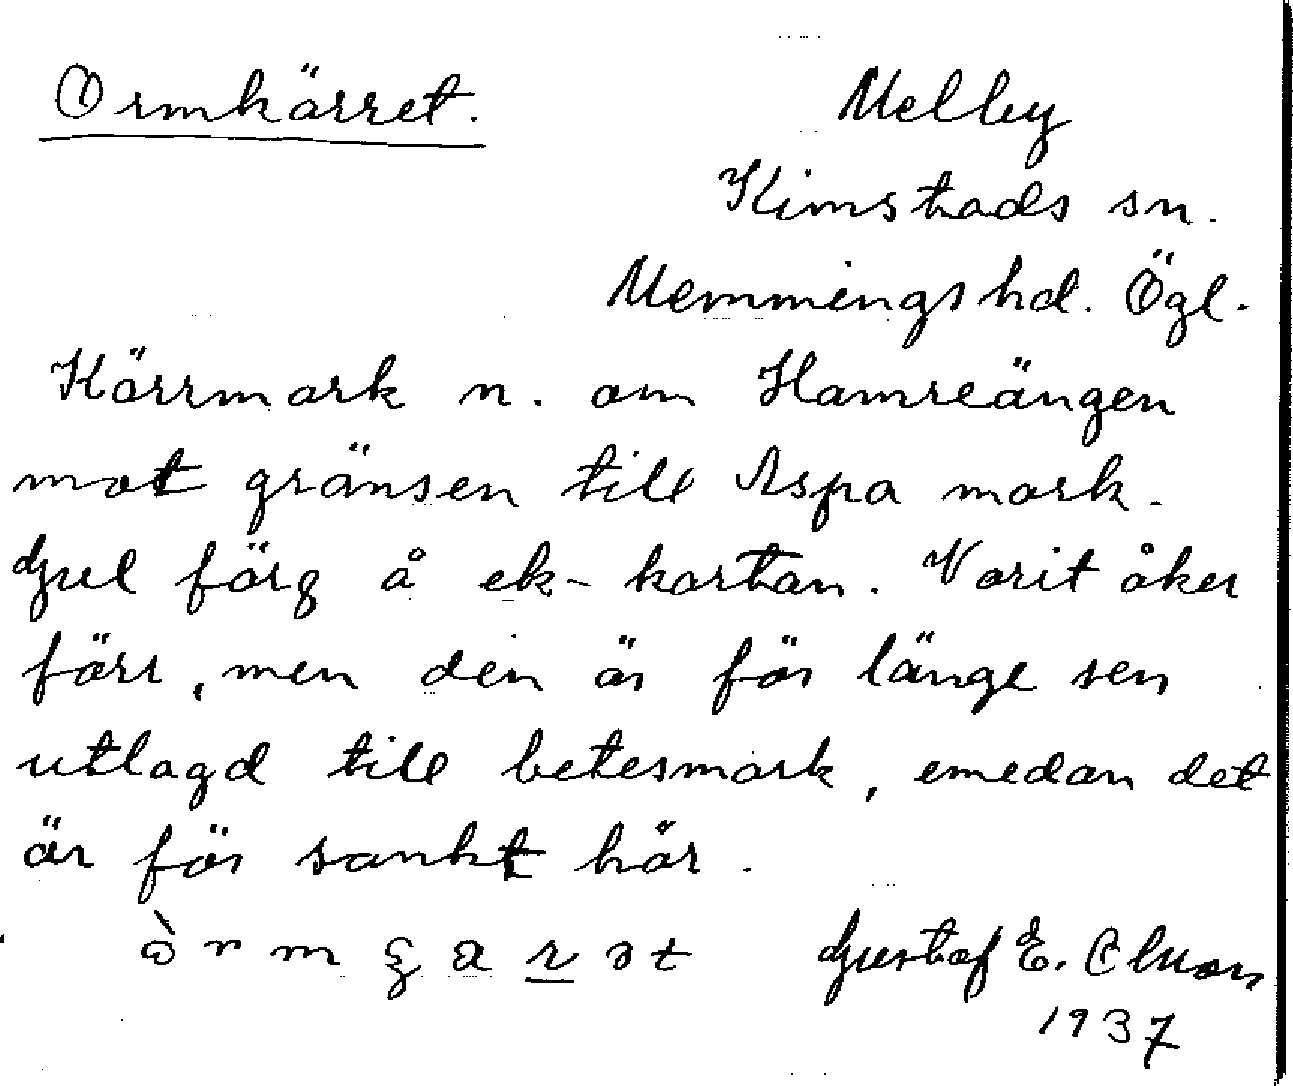 Ormkärret.
Melby
Kimstads sn.
Memmings hd. Ögl.
Kärrmark n. om Hamreängen
mot gränsen till Aspa mark.
Gul färg å ek-kartan. Varit åker
förr, men den är för länge sen
utlagd till betesmark, emedan det
är för sankt här.
Gustaf E. Clason
1937